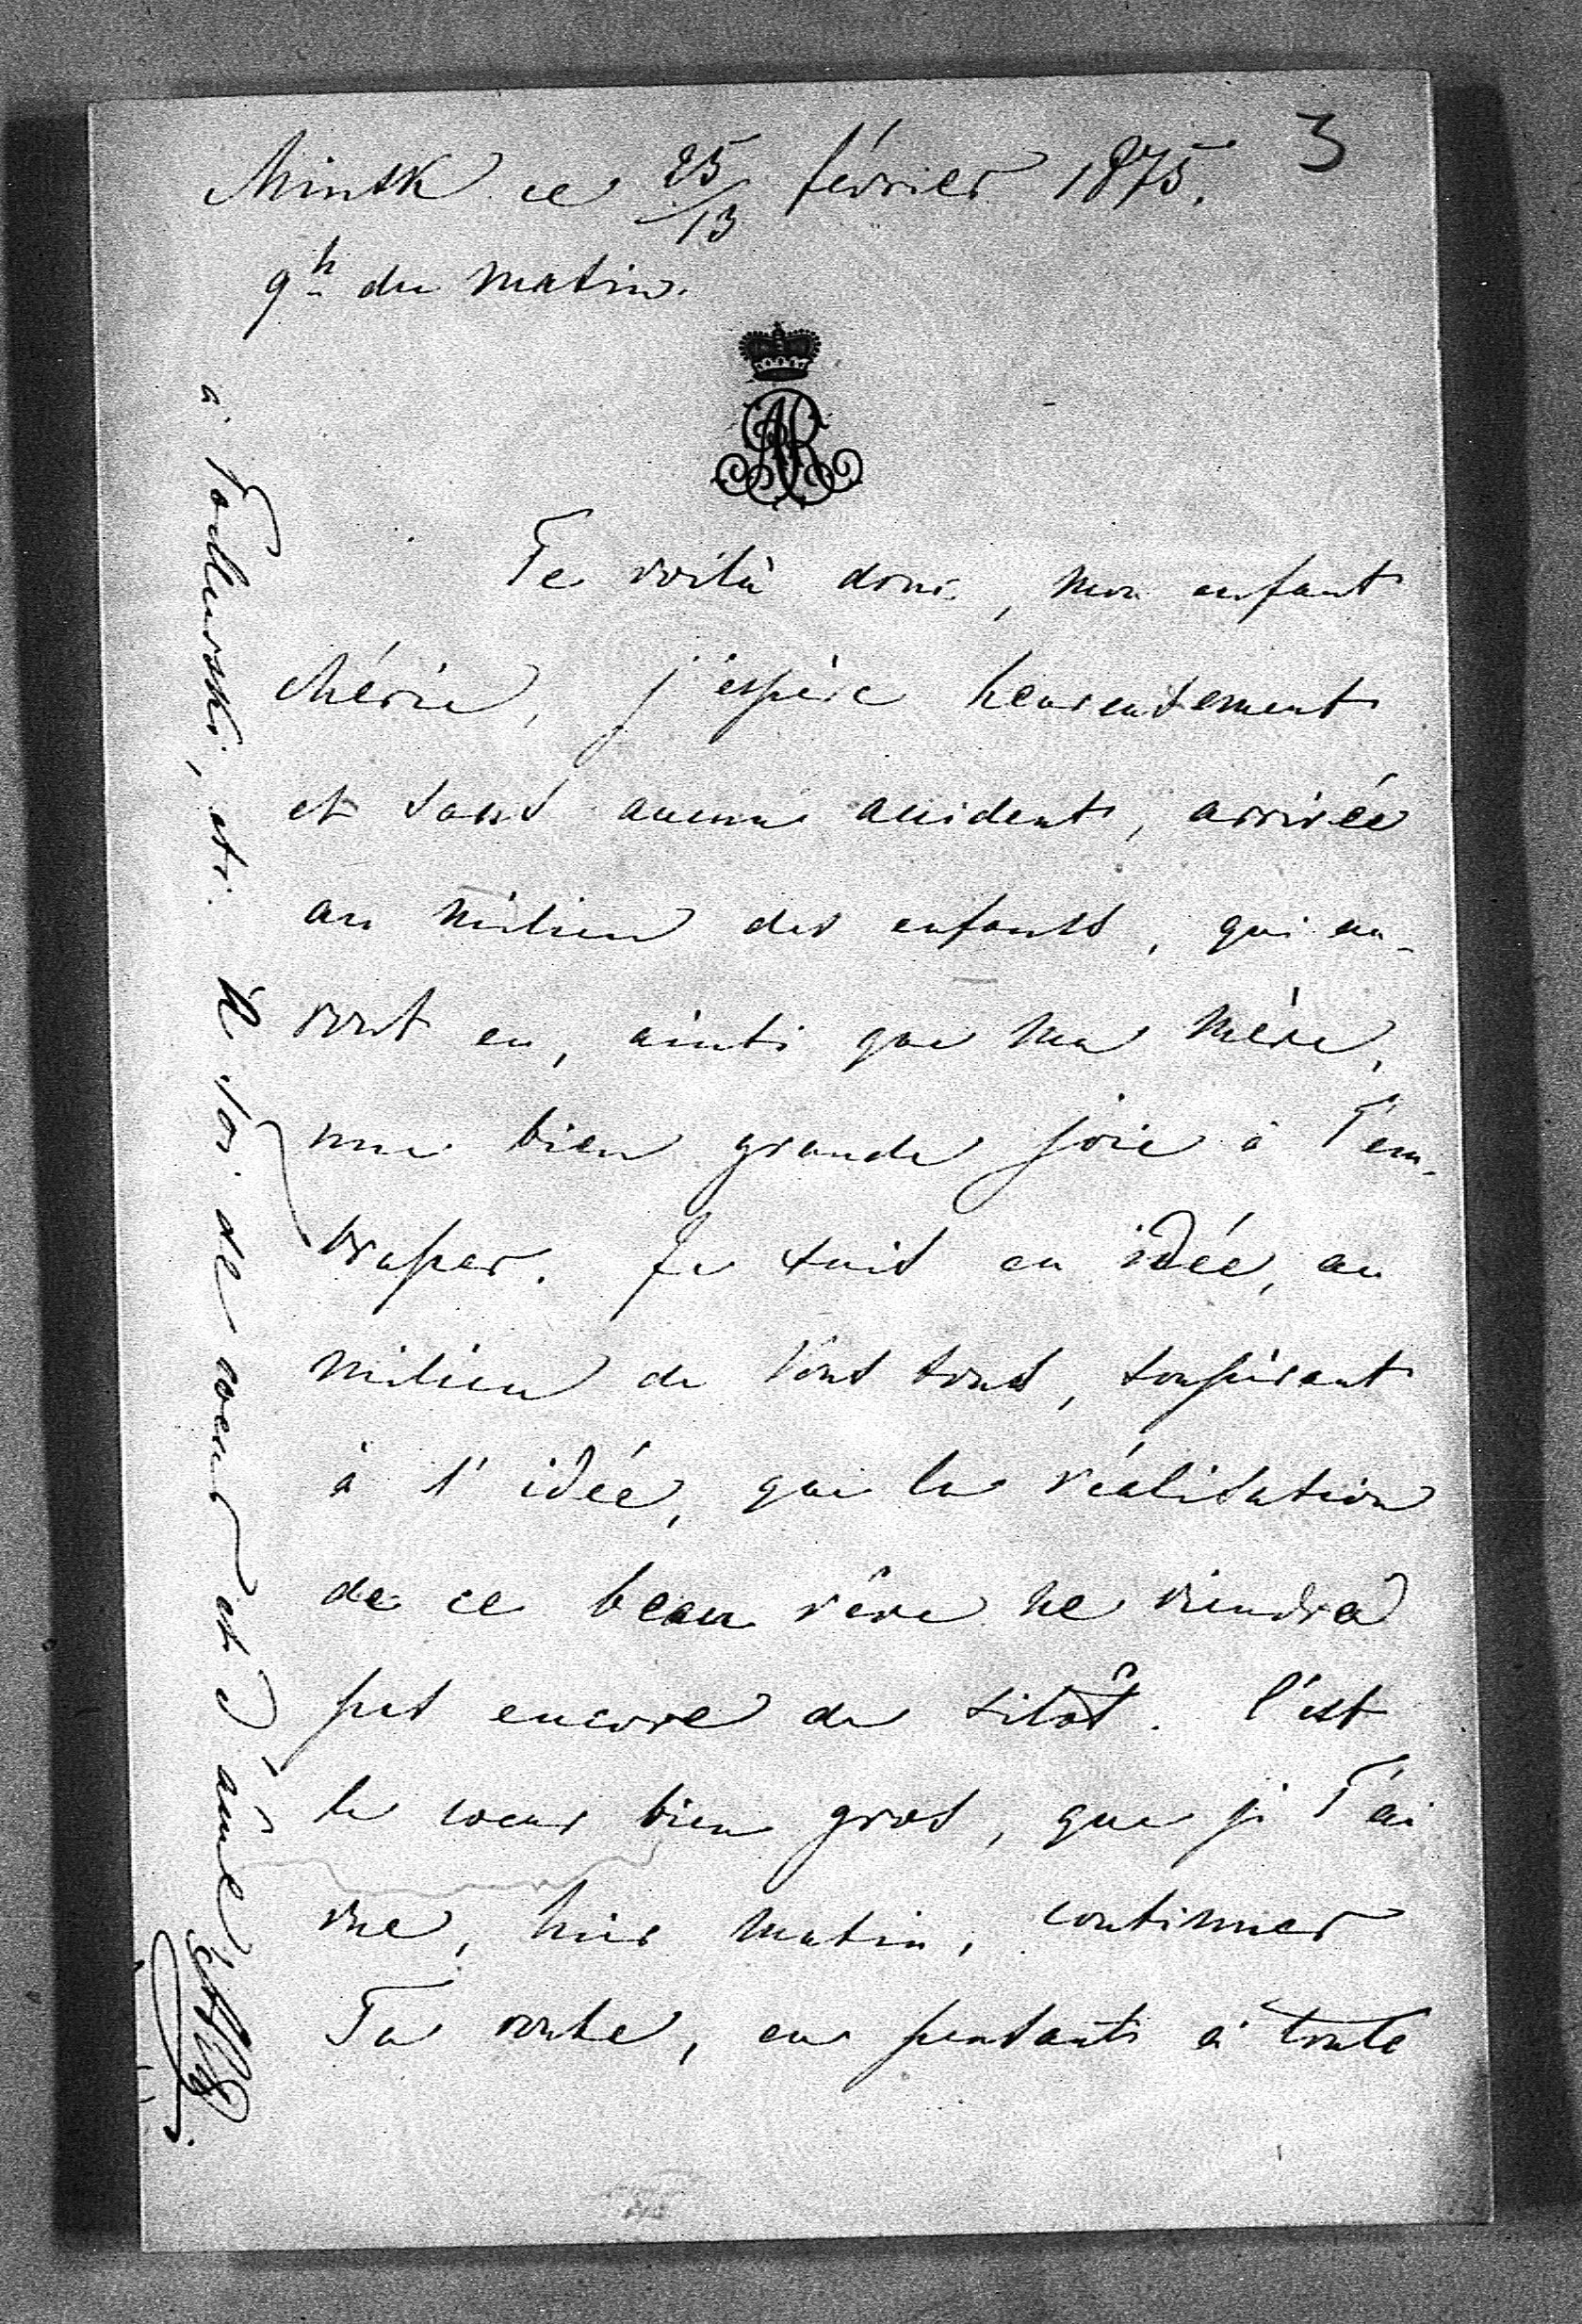 3
Minsk ce 25/13 février 1875.
9h du matin.
AR
Te voilà donc, mon enfant
chérie, j'espère heureusement
et sans aucun accident, arrivée
au milieu des enfants, qui au-
ront eu, ainsi que ma mère,
une bien grande joie à T'em-
brasser. Je suis en idée, au
milieu de Vous tous, soupirant
à l'idée, que la réalisation
de ce beau rêve ne viendra
pas encore de sitôt. C'est
le coeur bien gros, que je T'ai
vue, hier matin, continuer
Ta route, en pensant à toute
à etc. à Toi de coeur et d'âme